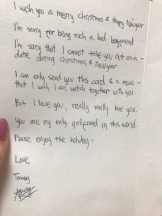 I wish you a merry christmas & happy new year
I'm sorry for being such a bad boyfriend
I'm sorry that I cannot take you out on a
date during christmas & new year
I can only send you this card & a movie
that I wish I can watch together with you.
But I love you, really really love you.
You are my only girlfriend in this world.
Please enjoy the holiday.
Love
Tommy